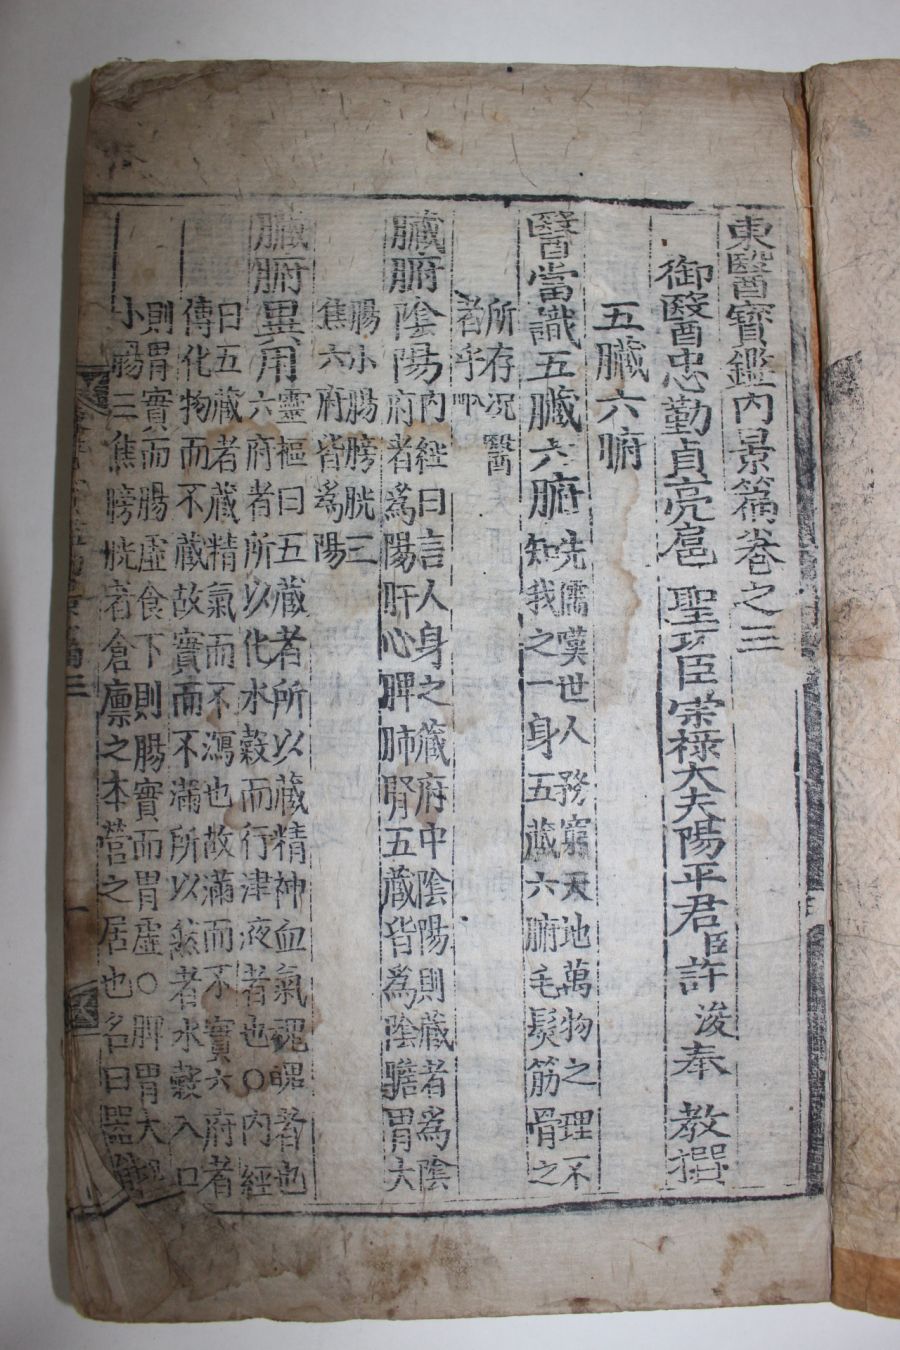 東醫寶鑑內景篇卷之三
御醫忠勤貞亮扈 聖功臣崇祿大夫陽平君臣許 浚奉 教撰
五臟六腑
醫當識五臟六腑先儒嘆世人務窮天地萬物之理不
知我之一身五藏六腑毛髮筋骨之
所存况醫
者乎入門
臟腑陰陽內經曰言人身之藏府中陰陽則藏者爲陰
府者爲陽肝心脾肺腎五藏皆爲陰膽胃大
腸小腸膀胱三
焦六府皆爲陽
臟腑異用靈樞曰五藏者所以藏精神血氣魂魄者也
六府者所以化水穀而行津液者也○內經
曰五藏者藏精氣而不瀉也故滿而不實六府者
傳化物而不藏故實而不滿所以然者水穀入口
則胃實而腸虛食下則腸實而胃虛○脾胃大
小腸三焦膀胱者倉廩之本營之居也名曰器